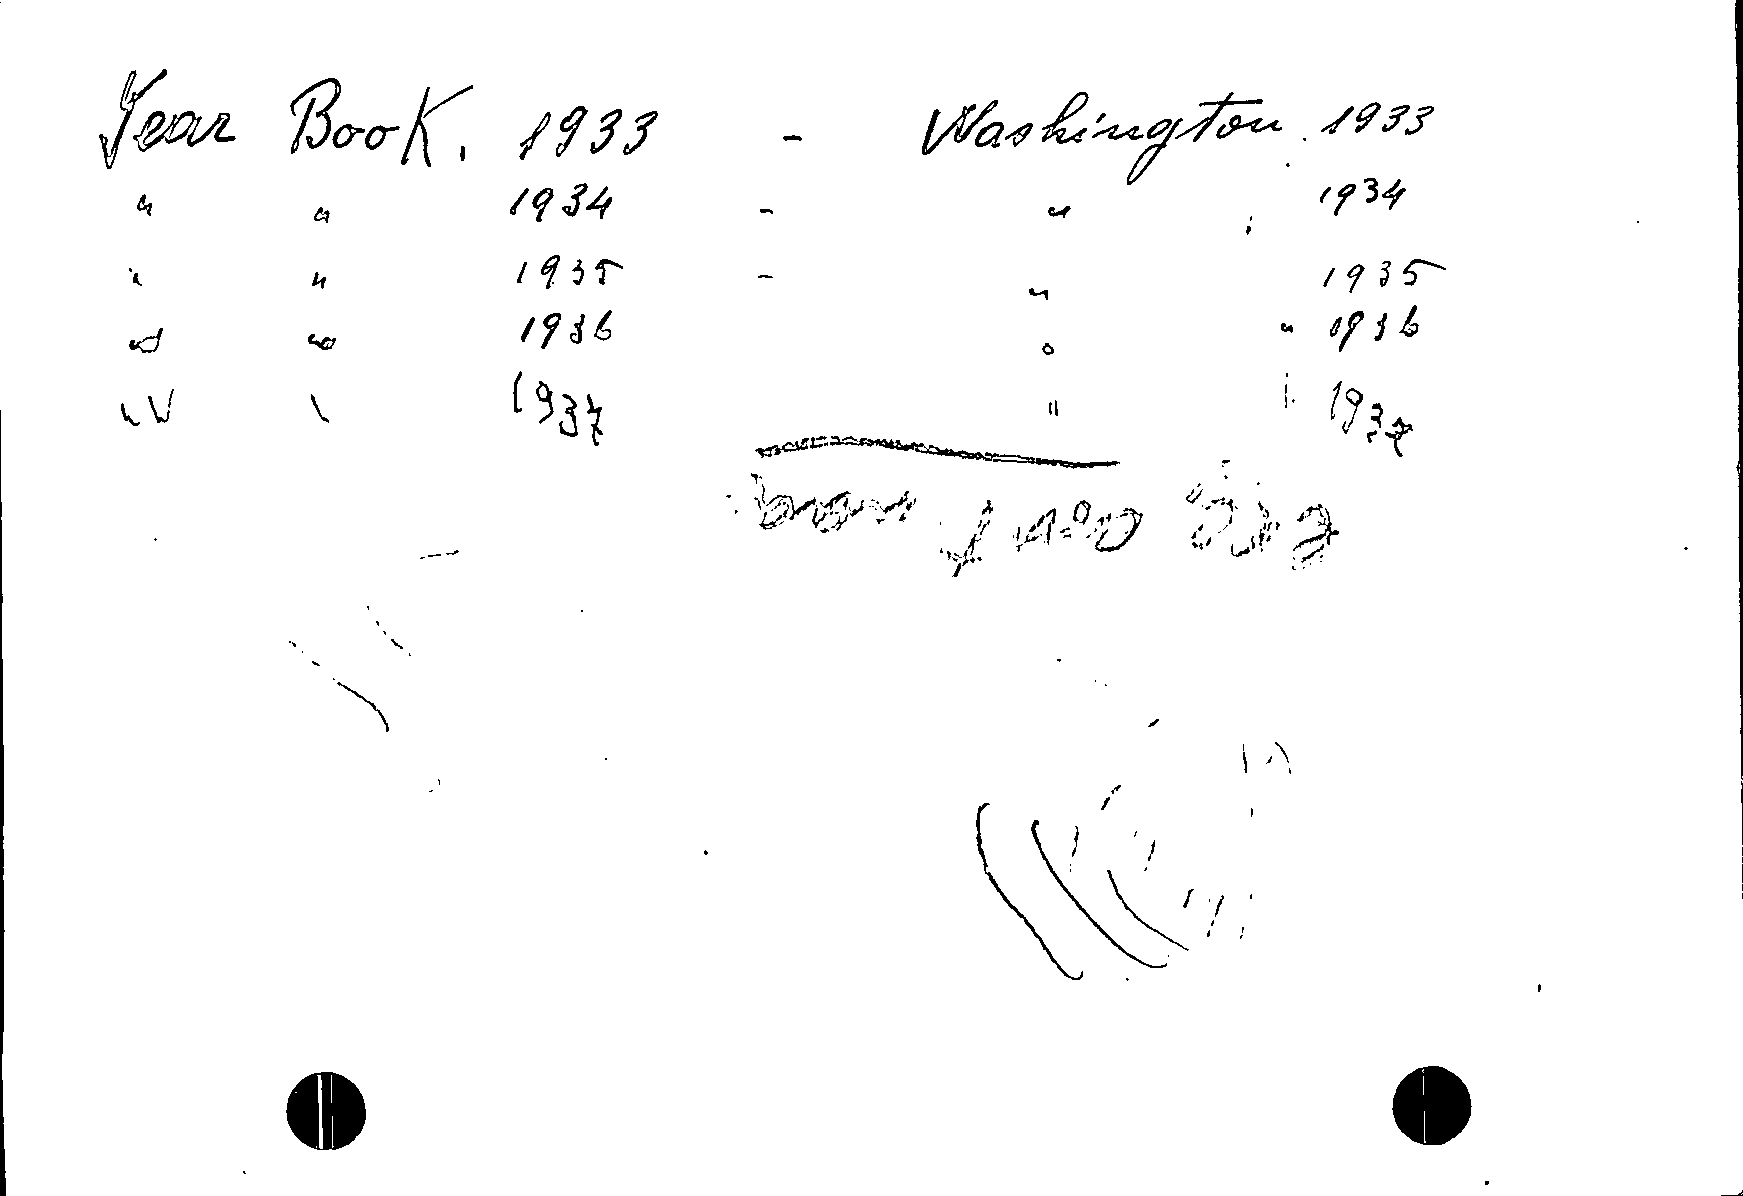 Year Book. 1933 - Washington 1933
" " 1934 - " 1934
" " 1935 - " 1935
" " 1936 " " 1936
" " 1937 " 1937